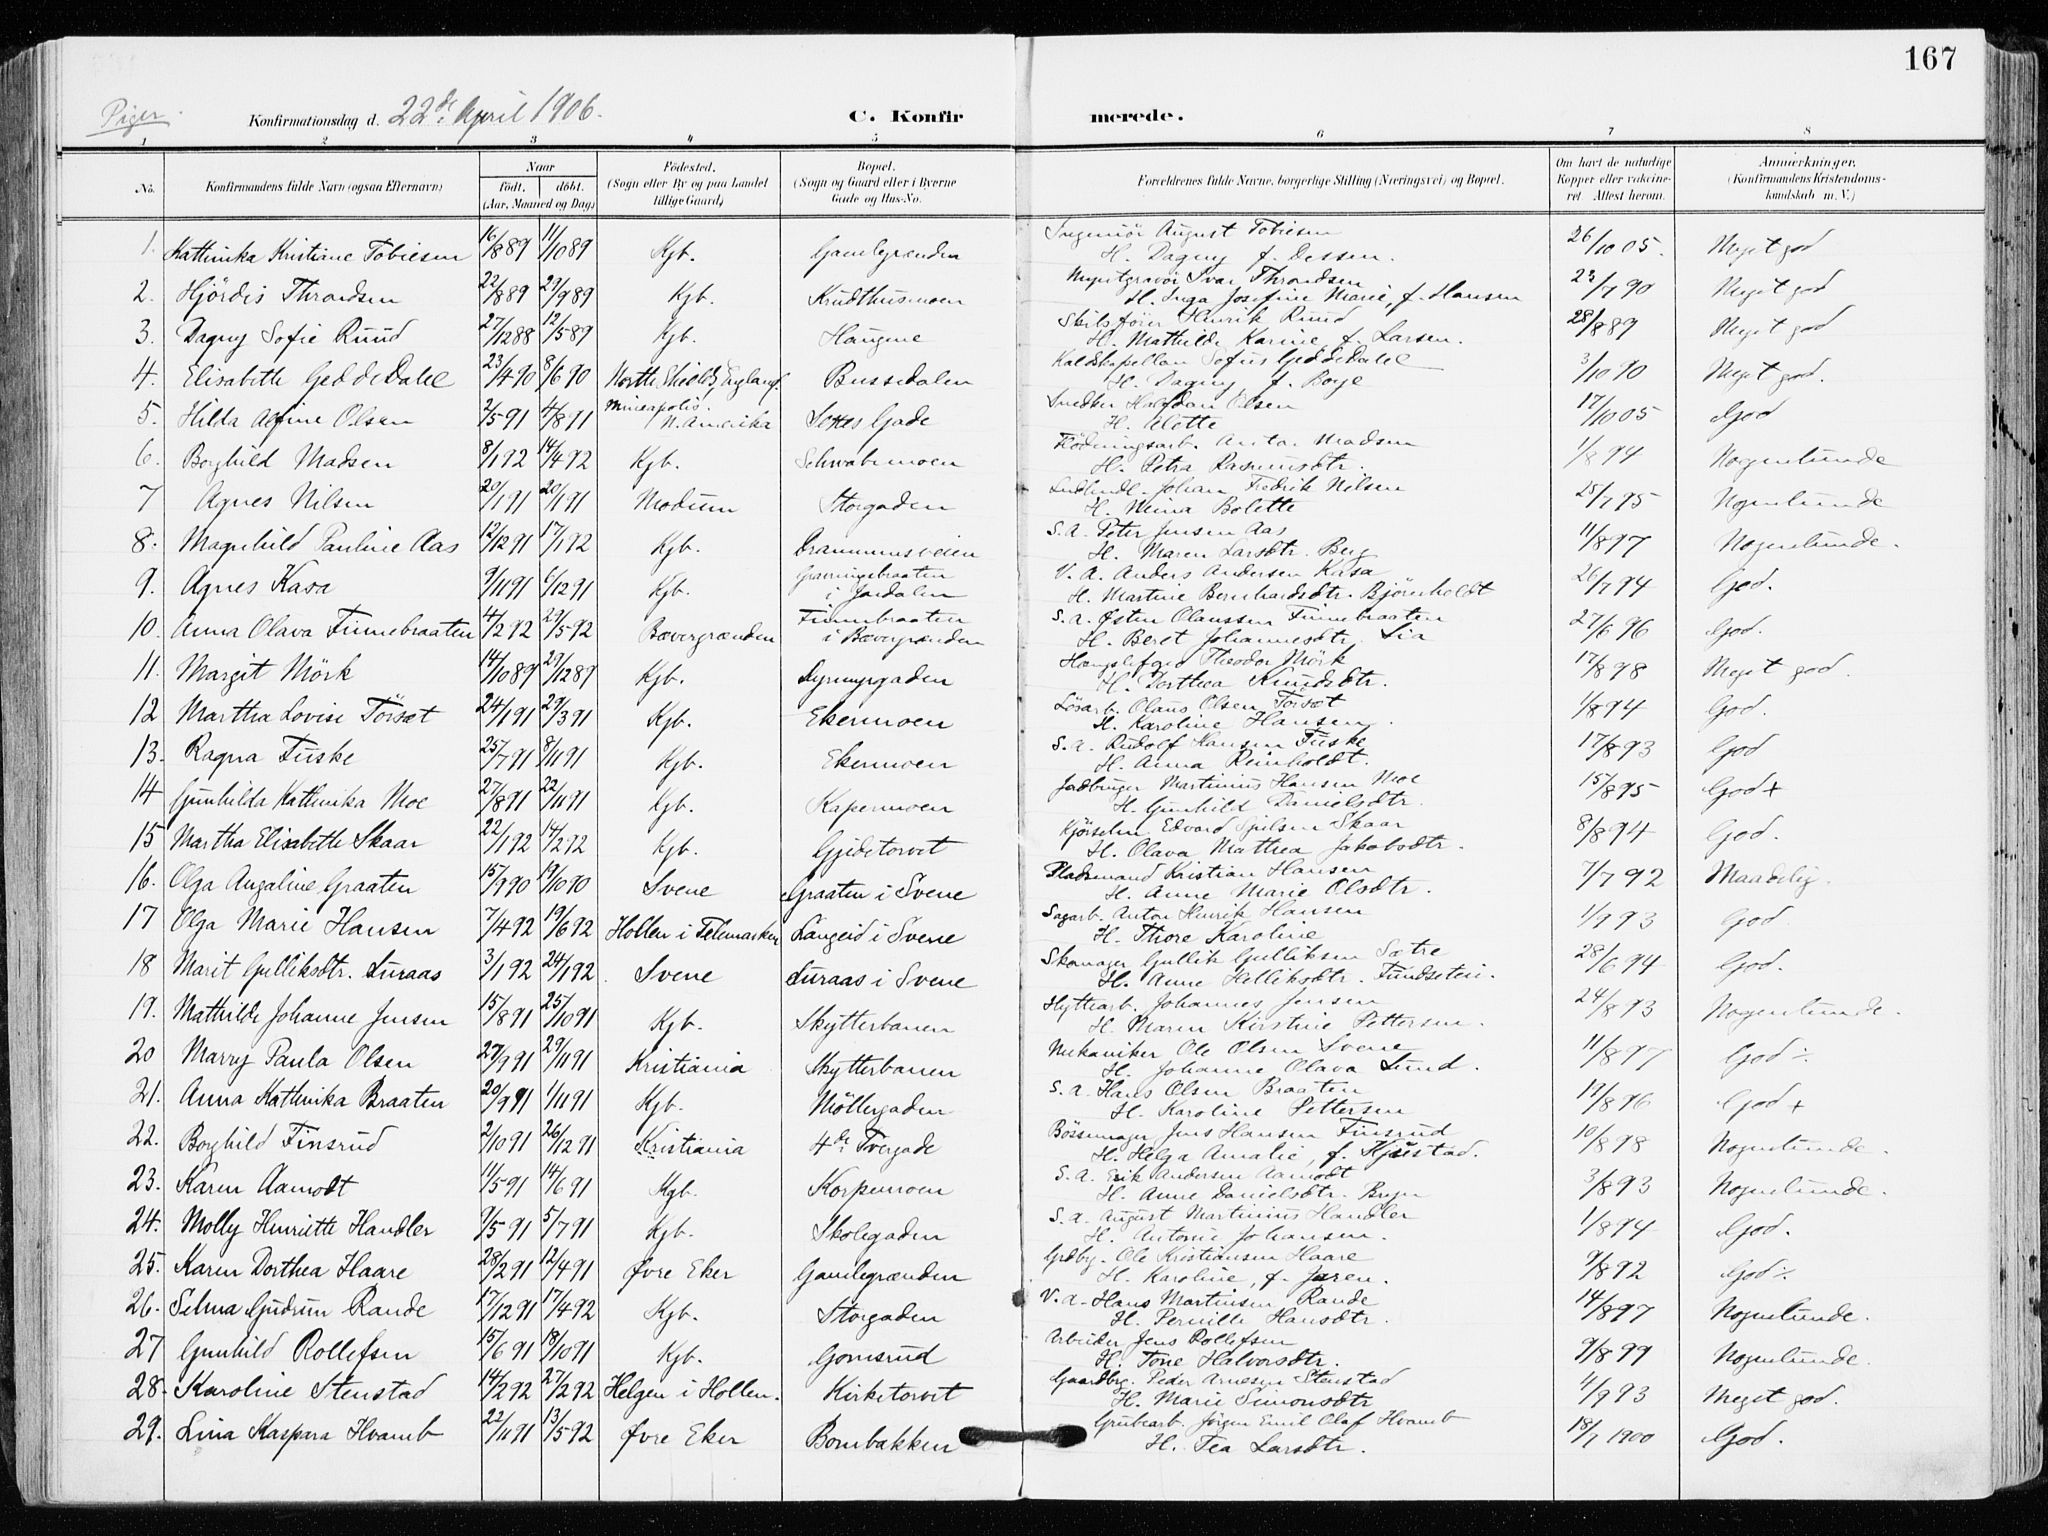 167
Piger.
Konfirmationsdag d. 22de April 1906.
C. Konfirmerede.
1 2 3 4 5 6 7 8
No. Konfirmandens fulde Navn (ogsaa Efternavn) Naar født. døbt. (Aar, Maaned og Dag) Fødested. (Sogn eller By og paa Landet tillige Gaard) Bopæl. (Sogn og Gaard eller i Byerne Gade og Hus-No. Forældrenes fulde Navne, borgerlige Stilling (Næringsvei) og Bopæl. Om havt de naturlige Kopper eller vakcineret. Attest herom. Anmærkninger. (Konfirmandens Kristendomskundskab m. V.)
1. Kathinka Kristiane Tobiesen 16/8 89 11/10 89 Kgb. Gamlegrænden Ingeniør August Tobiesen 26/10 05. Meget god
H. Dagny f. Dessen.
2. Hjördis Throndsen 22/8 89 29/9 89 Kgb. Krudthusmoen Myntgravör Ivar Throndsen 23/7 90 Meget god
H. Inga Josefine Marie, f. Hansen
3. Dagny Sofie Ruud 27/12 88 12/5 89 Kgb. Haugene Henrik Ruud 28/8 89 Meget god
H. Mathilde Karine f. Larsen.
4. Elisabeth Gedde Dahl 23/4 90 8/6 90 North Shields, England Bussedalen Sofus Gedde Dahl 3/10 90 Meget god.
H. Dagny, f. Boye
5. Hilda Alfine Olsen 2/5 91 4/8 91 Mineapolis. N. Amerika Gade Snedker Halfdan Olsen 17/10 05 God
H. Alette
6. Borghild Madsen 8/1 92 14/4 92 Kgb. Schwabemoen Flödningsarb. Anton Madsen 1/8 94 Nogenlunde
H. Petra Rasmusdtr.
7 Agnes Nilsen 20/1 91 20/1 91 Modum Storgaden Johan Fredrik Nilsen 25/7 95 Nogenlunde
H. Mina Bolette
8. Magnhild Pauline Aas 12/12 91 17/1 92 Kgb. Drammensveien S. A. Peter Jensen Aas 11/8 97 Nogenlunde.
H. Maren Larsdtr. Berg
9. Agnes Kasa 9/11 91 6/12 91 Kgb. i Jondalen V. A. Anders Andersen Kasa 26/7 94 God.
H. Martine Bernhardsdtr. Björnholdt
10. Anna Olava Finnebraaten 4/2 92 29/5 92 Bævergrænden Finnebraaten i Bævergrænden S. a. Østen Olaussen Finnebraaten 27/6 96 God.
H. Beret Johannesdtr. Lia
11. Margit Mörk 14/10 89 29/12 89 Kgb. Dyrmyrgaden Theodor Mörk 17/8 98 Meget god.
H. Dorthea Knudsdtr.
12 Martha Lovise Törset 24/1 91 29/3 91 Kgb. Ekermoen Lösarb. Olaus Olsen Törset 1/8 94 God.
H. Karoline Hansen.
13. Ragna Fuske 25/7 91 8/11 91 Kgb. Ekermoen S. a. Rudolf Hansen Fuske 17/8 93 God
H. Anna Reinholdt.
14 Gunhilda Kathinka Moe 27/8 91 22/11 91 Kgb. Kapermoen Jordbruger Martinius Hansen Moe 15/8 95 God +
H. Gunhild Danielsdtr.
15 Martha Elisabeth Skaar 22/1 92 14/2 92 Kgb. Gjedetorvet Edvard Skaar 8/8 94 God.
H. Olava Mathea Jakobsdtr.
16. Olga Angaline Graaten 15/9 90 19/10 90 Svene Graaten i Svene Pladsmand Kristian Hansen 7/7 92 Maadelig.
H. Anne Marie Olsdtr.
17 Olga Marie Hansen 7/4 92 19/6 92 Hollen i Telemarken Langeid i Svene Sagarb. Anton Henrik Hansen 1/9 93 God
H. Thore Karoline
18 Marit Gulliksdtr. Luraas 3/1 92 24/1 92 Svene Luraas i Svene Skomager Gullik Gulliksen Sætre 28/6 94 God.
H. Anne Helliksdtr.
19. Mathilde Johanne Jensen 15/8 91 25/10 91 Kgb. Skytterbanen Hyttearb. Johannes Jensen 24/8 93 Nogenlunde.
H. Maren Kirstine Pettersen.
20 Marry Paula Olsen 27/9 91 29/11 91 Kristiania Skytterbanen Mekaniker Ole Olsen Svene 11/8 97 God ÷
H. Johanne Olava Lund.
21. Anna Kathinka Braaten 20/9 91 1/11 91 Kgb. Möllergaden S. a Hans Olsen Braaten 17/8 96 God +
H. Karoline Pettersen
22. Borghild Finsrud 2/10 91 26/12 91 Kristiania 4de Tvergade Bössemager Jens Hansen Finsrud 10/8 98 Nogenlunde.
H. Helga Amalie, f. Kjustad.
23. Karen Aamodt 11/5 91 14/6 91 Kgb. Korpemoen S. A. Erik Andersen Aamodt 3/8 93 Nogenlunde.
H. Anne Danielsdtr. Bryn
24. Molly Henriette Handler 9/5 91 5/7 91 Kgb. Skolegaden S. a. August Martinius Handler 1/8 94 God.
H. Antonie Johansen.
25. Karen Dorthea Haare 28/2 91 12/4 91 Øvre Eker Gamlegrænden Grdbg. Ole Kristiansen Haare 9/8 92 God ÷.
H. Karoline, f. Juren.
26. Selma Gudrun Rande 17/12 91 17/4 92 Kgb. Storgaden V. a. Hans Martinsen Rande 14/8 97 Nogenlunde.
H. Pernille Hansdtr.
27 Gunhild Rollefsen 15/6 91 18/10 91 Kgb. Gomsrud Arbeider Jens Rollefsen 9/8 99 Nogenlunde.
H. Tone Halvorsdtr.
28. Karoline Stenstad 14/2 92 27/2 92 Helgen i Hollen. Kirketorvet Gaardbrg. Peder Arnesen Stenstad 4/9 93 Meget god.
H. Marie Simonsdtr
29. Lina Kaspara Hvamb 22/11 91 13/5 92 Øvre Eker Bombakken Grubearb. Jörgen Emil Olaf Hvamb 18/7 1900 God.
H. Tea Larsdtr.